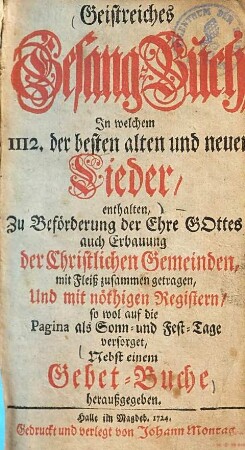 Geistreiches
Gesang-Buch
In welchem
1112. der besten alten und neuen
Lieder/
enthalten,
Zu Beförderung der Ehre GOttes
auch Erbauung
der Christlichen Gemeinden,
mit Fleiß zusammen getragen,
Und mit nöthigen Registern/
so wol auf die
Pagina als Sonn- und Fest-Tage
versorget,
Nebst einem
Gebet-Buche
herausgegeben.
Halle im Magdeb. 1724.
Gedruckt und verlegt von Johann Montag